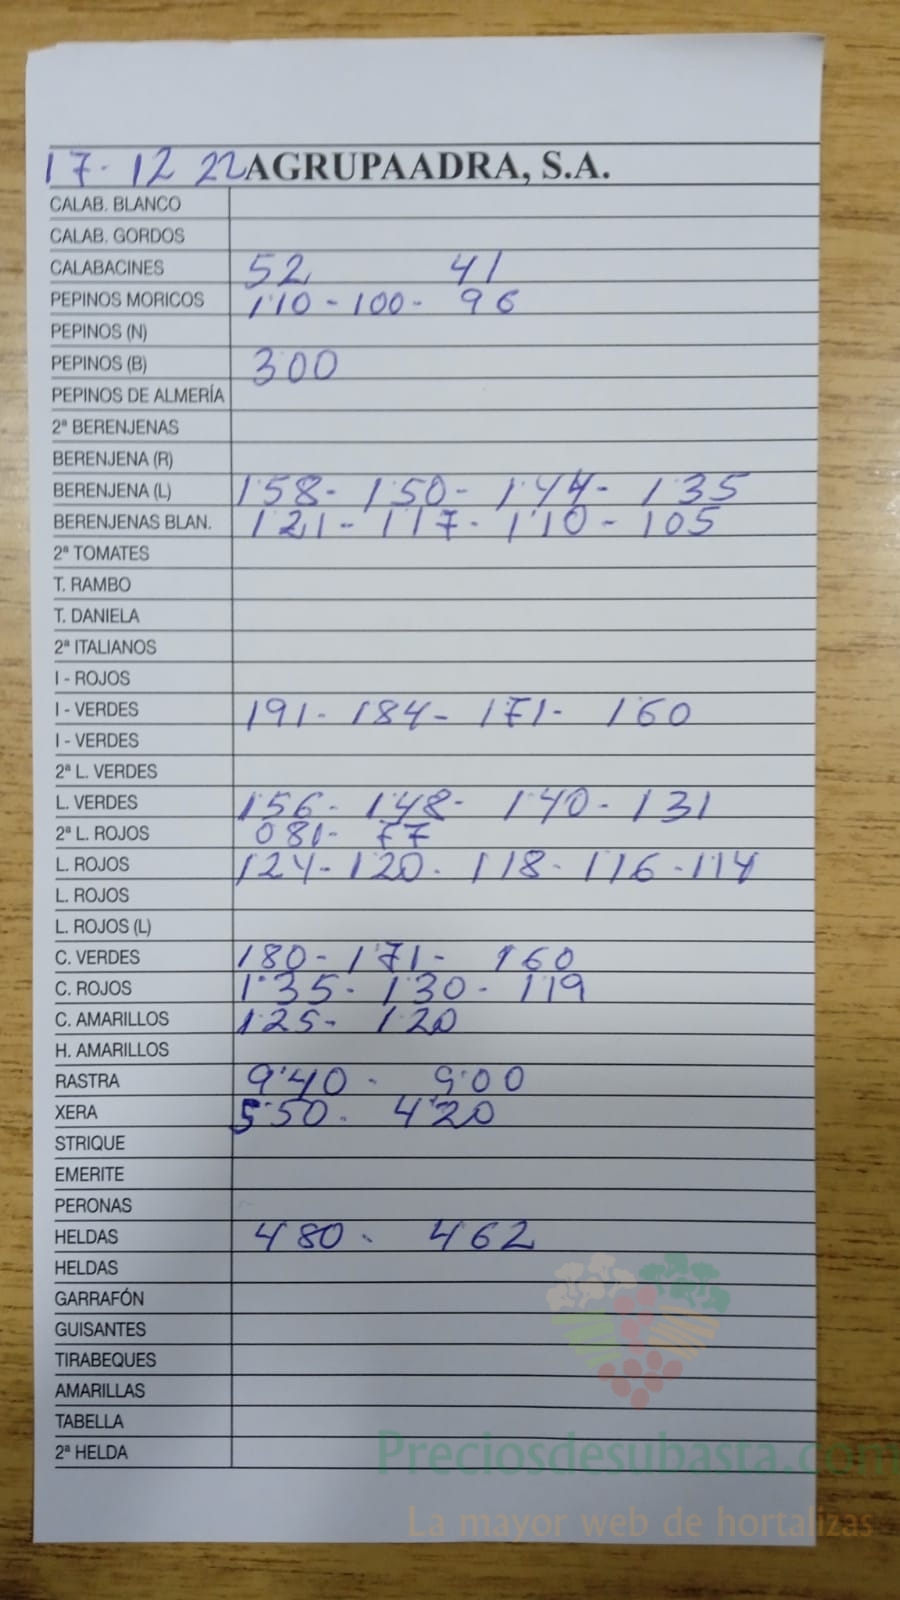 17-12 22 AGRUPAADRA, S.A.
CALAB. BLANCO
CALAB. GORDOS
CALABACINES 52 41
PEPINOS MORICOS 1'10 - 100 - 96
PEPINOS (N)
PEPINOS (B) 300
PEPINOS DE ALMERÍA
2ª BERENJENAS
BERENJENA (R)
BERENJENA (L) 1'58 - 1'50 - 1'44 - 1'35
BERENJENAS BLAN. 121 - 117 - 1'10 - 105
2ª TOMATES
T. RAMBO
T. DANIELA
2ª ITALIANOS
I - ROJOS
I - VERDES 191 - 184 - 171 - 160
I - VERDES
2ª L. VERDES
L. VERDES 1'56 - 1'48 - 1'40 - 131
2ª L. ROJOS 081 - 77
L. ROJOS 124 - 120 - 118 - 116 - 114
L. ROJOS
L. ROJOS (L)
C. VERDES 180 - 1'71 - 160
C. ROJOS 1'35 - 130 - 119
C. AMARILLOS 125 - 120
H. AMARILLOS
RASTRA 9'40 - 9'00
XERA 5'50 - 4'20
STRIQUE
EMERITE
PERONAS
HELDAS 480 - 462
HELDAS
GARRAFÓN
GUISANTES
TIRABEQUES
AMARILLAS
TABELLA
2ª HELDA
Preciosdesubasta.com
La mayor web de hortalizas